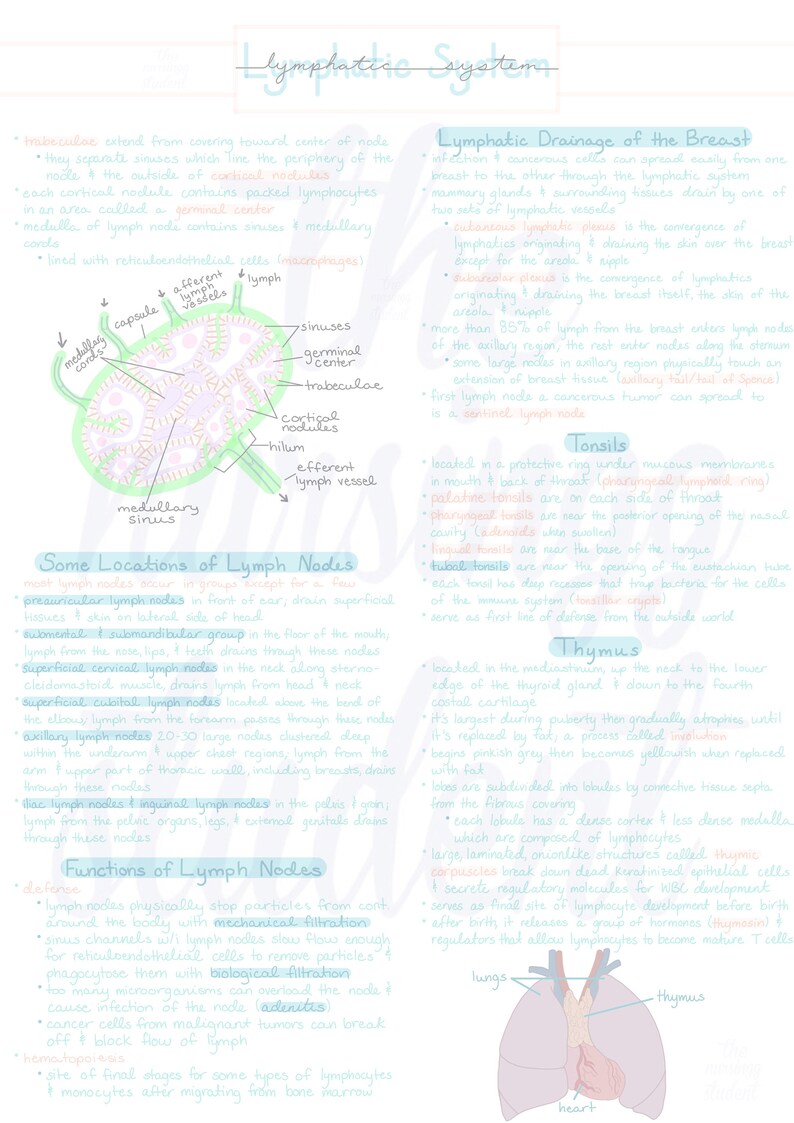 Lymphatic System
lymphatic system
• trabeculae extend from covering toward center of node
• they separate sinuses which line the periphery of the
node & the outside of cortical nodules
• each cortical nodule contains packed lymphocytes
in an area called a germinal center
• medulla of lymph node contains sinuses & medullary
cords
• lined with reticuloendothelial cells (macrophages)
lymph
afferent
lymph
vessels
capsule
medullary
cords
sinuses
germinal
center
trabeculae
cortical
nodules
hilum
efferent
lymph vessel
medullary
sinus
Some Locations of Lymph Nodes
most lymph nodes occur in groups except for a few
• preauricular lymph nodes in front of ear; drain superficial
tissues & skin on lateral side of head
• submental & submandibular group in the floor of the mouth;
lymph from the nose, lips, & teeth drains through these nodes
• superficial cervical lymph nodes in the neck along sterno-
cleidomastoid muscle, drains lymph from head & neck
• superficial cubital lymph nodes located above the bend of
the elbow; lymph from the forearm passes through these nodes
• axillary lymph nodes 20-30 large nodes clustered deep
within the underarm & upper chest regions; lymph from the
arm & upper part of thoracic wall, including breasts, drains
through these nodes
• iliac lymph nodes & inguinal lymph nodes in the pelvis & groin;
lymph from the pelvic organs, legs, & external genitals drains
through these nodes
Functions of Lymph Nodes
• defense
• lymph nodes physically stop particles from cont.
around the body with mechanical filtration
• sinus channels w/i lymph nodes slow flow enough
for reticuloendothelial cells to remove particles &
phagocytose them with biological filtration
• too many microorganisms can overload the node &
cause infection of the node (adenitis)
• cancer cells from malignant tumors can break
off & block flow of lymph
• hematopoiesis
• site of final stages for some types of lymphocytes
& monocytes after migrating from bone marrow
Lymphatic Drainage of the Breast
• infection & cancerous cells can spread easily from one
breast to the other through the lymphatic system
• mammary glands & surrounding tissues drain by one of
two sets of lymphatic vessels
• cutaneous lymphatic plexus is the convergence of
lymphatics originating & draining the skin over the breast
except for the areola & nipple
• subareolar plexus is the convergence of lymphatics
originating & draining the breast itself, the skin of the
areola & nipple
• more than 85% of lymph from the breast enters lymph nodes
of the axillary region, the rest enter nodes along the sternum
• some large nodes in axillary region physically touch an
extension of breast tissue (axillary tail/tail of Spence)
• first lymph node a cancerous tumor can spread to
is a sentinel lymph node
Tonsils
• located in a protective ring under mucous membranes
in mouth & back of throat (pharyngeal lymphoid ring)
• palatine tonsils are on each side of throat
• pharyngeal tonsils are near the posterior opening of the nasal
cavity (adenoids when swollen)
• lingual tonsils are near the base of the tongue
• tubal tonsils are near the opening of the eustachian tube
• each tonsil has deep recesses that trap bacteria for the cells
of the immune system (tonsillar crypts)
• serve as first line of defense from the outside world
Thymus
• located in the mediastinum, up the neck to the lower
edge of the thyroid gland & down to the fourth
costal cartilage
• it's largest during puberty then gradually atrophies until
it's replaced by fat, a process called involution
• begins pinkish grey then becomes yellowish when replaced
with fat
• lobes are subdivided into lobules by connective tissue septa
from the fibrous covering
• each lobule has a dense cortex & less dense medulla
which are composed of lymphocytes
• large, laminated, onionlike structures called thymic
corpuscles break down dead keratinized epithelial cells
& secrete regulatory molecules for WBC development
• serves as final site of lymphocyte development before birth
• after birth, it releases a group of hormones (thymosin) &
regulators that allow lymphocytes to become mature T cells
lungs
thymus
heart
the
nursing
student